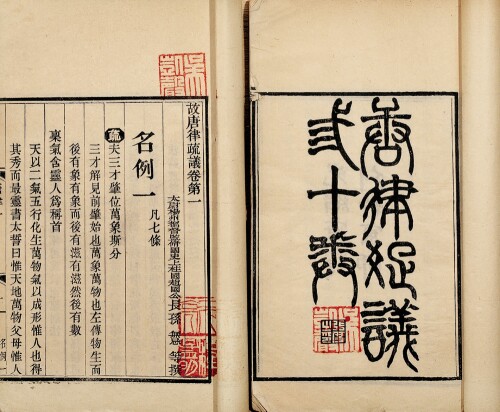 唐律疏議
弎十卷
故唐律疏議卷第一
太尉揚州都督監修國史上柱國趙國公長孫 無忌 等撰
名例一 凡七條
疏夫三才肇位萬象斯分
三才解見前肇始也萬象萬物也左傳物生而
後有象有象而後有滋有滋然後有數
稟氣含靈人爲稱首
天以二氣五行化生萬物氣以成形惟人也得
其秀而最靈書太誓曰惟天地萬物父母惟人
名例一